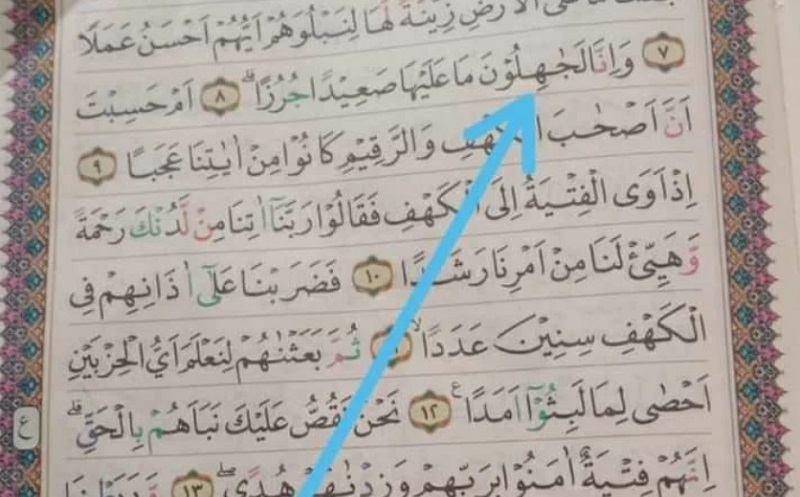 الْاَرْضِ زِيْنَةً لَّهَا لِنَبْلُوَهُمْ اَيُّهُمْ اَحْسَنُ عَمَلًا
٧ وَاِنَّا لَجٰهِلُوْنَ مَا عَلَيْهَا صَعِيْدًا جُرُزًاۗ ٨ اَمْ حَسِبْتَ
اَنَّ اَصْحٰبَ الْكَهْفِ وَالرَّقِيْمِ كَانُوْا مِنْ اٰيٰتِنَا عَجَبًا ٩
اِذْ اَوَى الْفِتْيَةُ اِلَى الْكَهْفِ فَقَالُوْا رَبَّنَآ اٰتِنَا مِنْ لَّدُنْكَ رَحْمَةً
وَّهَيِّئْ لَنَا مِنْ اَمْرِنَا رَشَدًا ١٠ فَضَرَبْنَا عَلٰٓى اٰذَانِهِمْ فِى
الْكَهْفِ سِنِيْنَ عَدَدًاۙ ثُمَّ بَعَثْنٰهُمْ لِنَعْلَمَ اَيُّ الْحِزْبَيْنِ
اَحْصٰى لِمَا لَبِثُوْٓا اَمَدًا ࣖ ١٢ نَحْنُ نَقُصُّ عَلَيْكَ نَبَاَهُمْ بِالْحَقِّۗ
اِنَّهُمْ فِتْيَةٌ اٰمَنُوْا بِرَبِّهِمْ وَزِدْنٰهُمْ هُدًىۖ ١٣ وَّرَبَطْنَا
ع